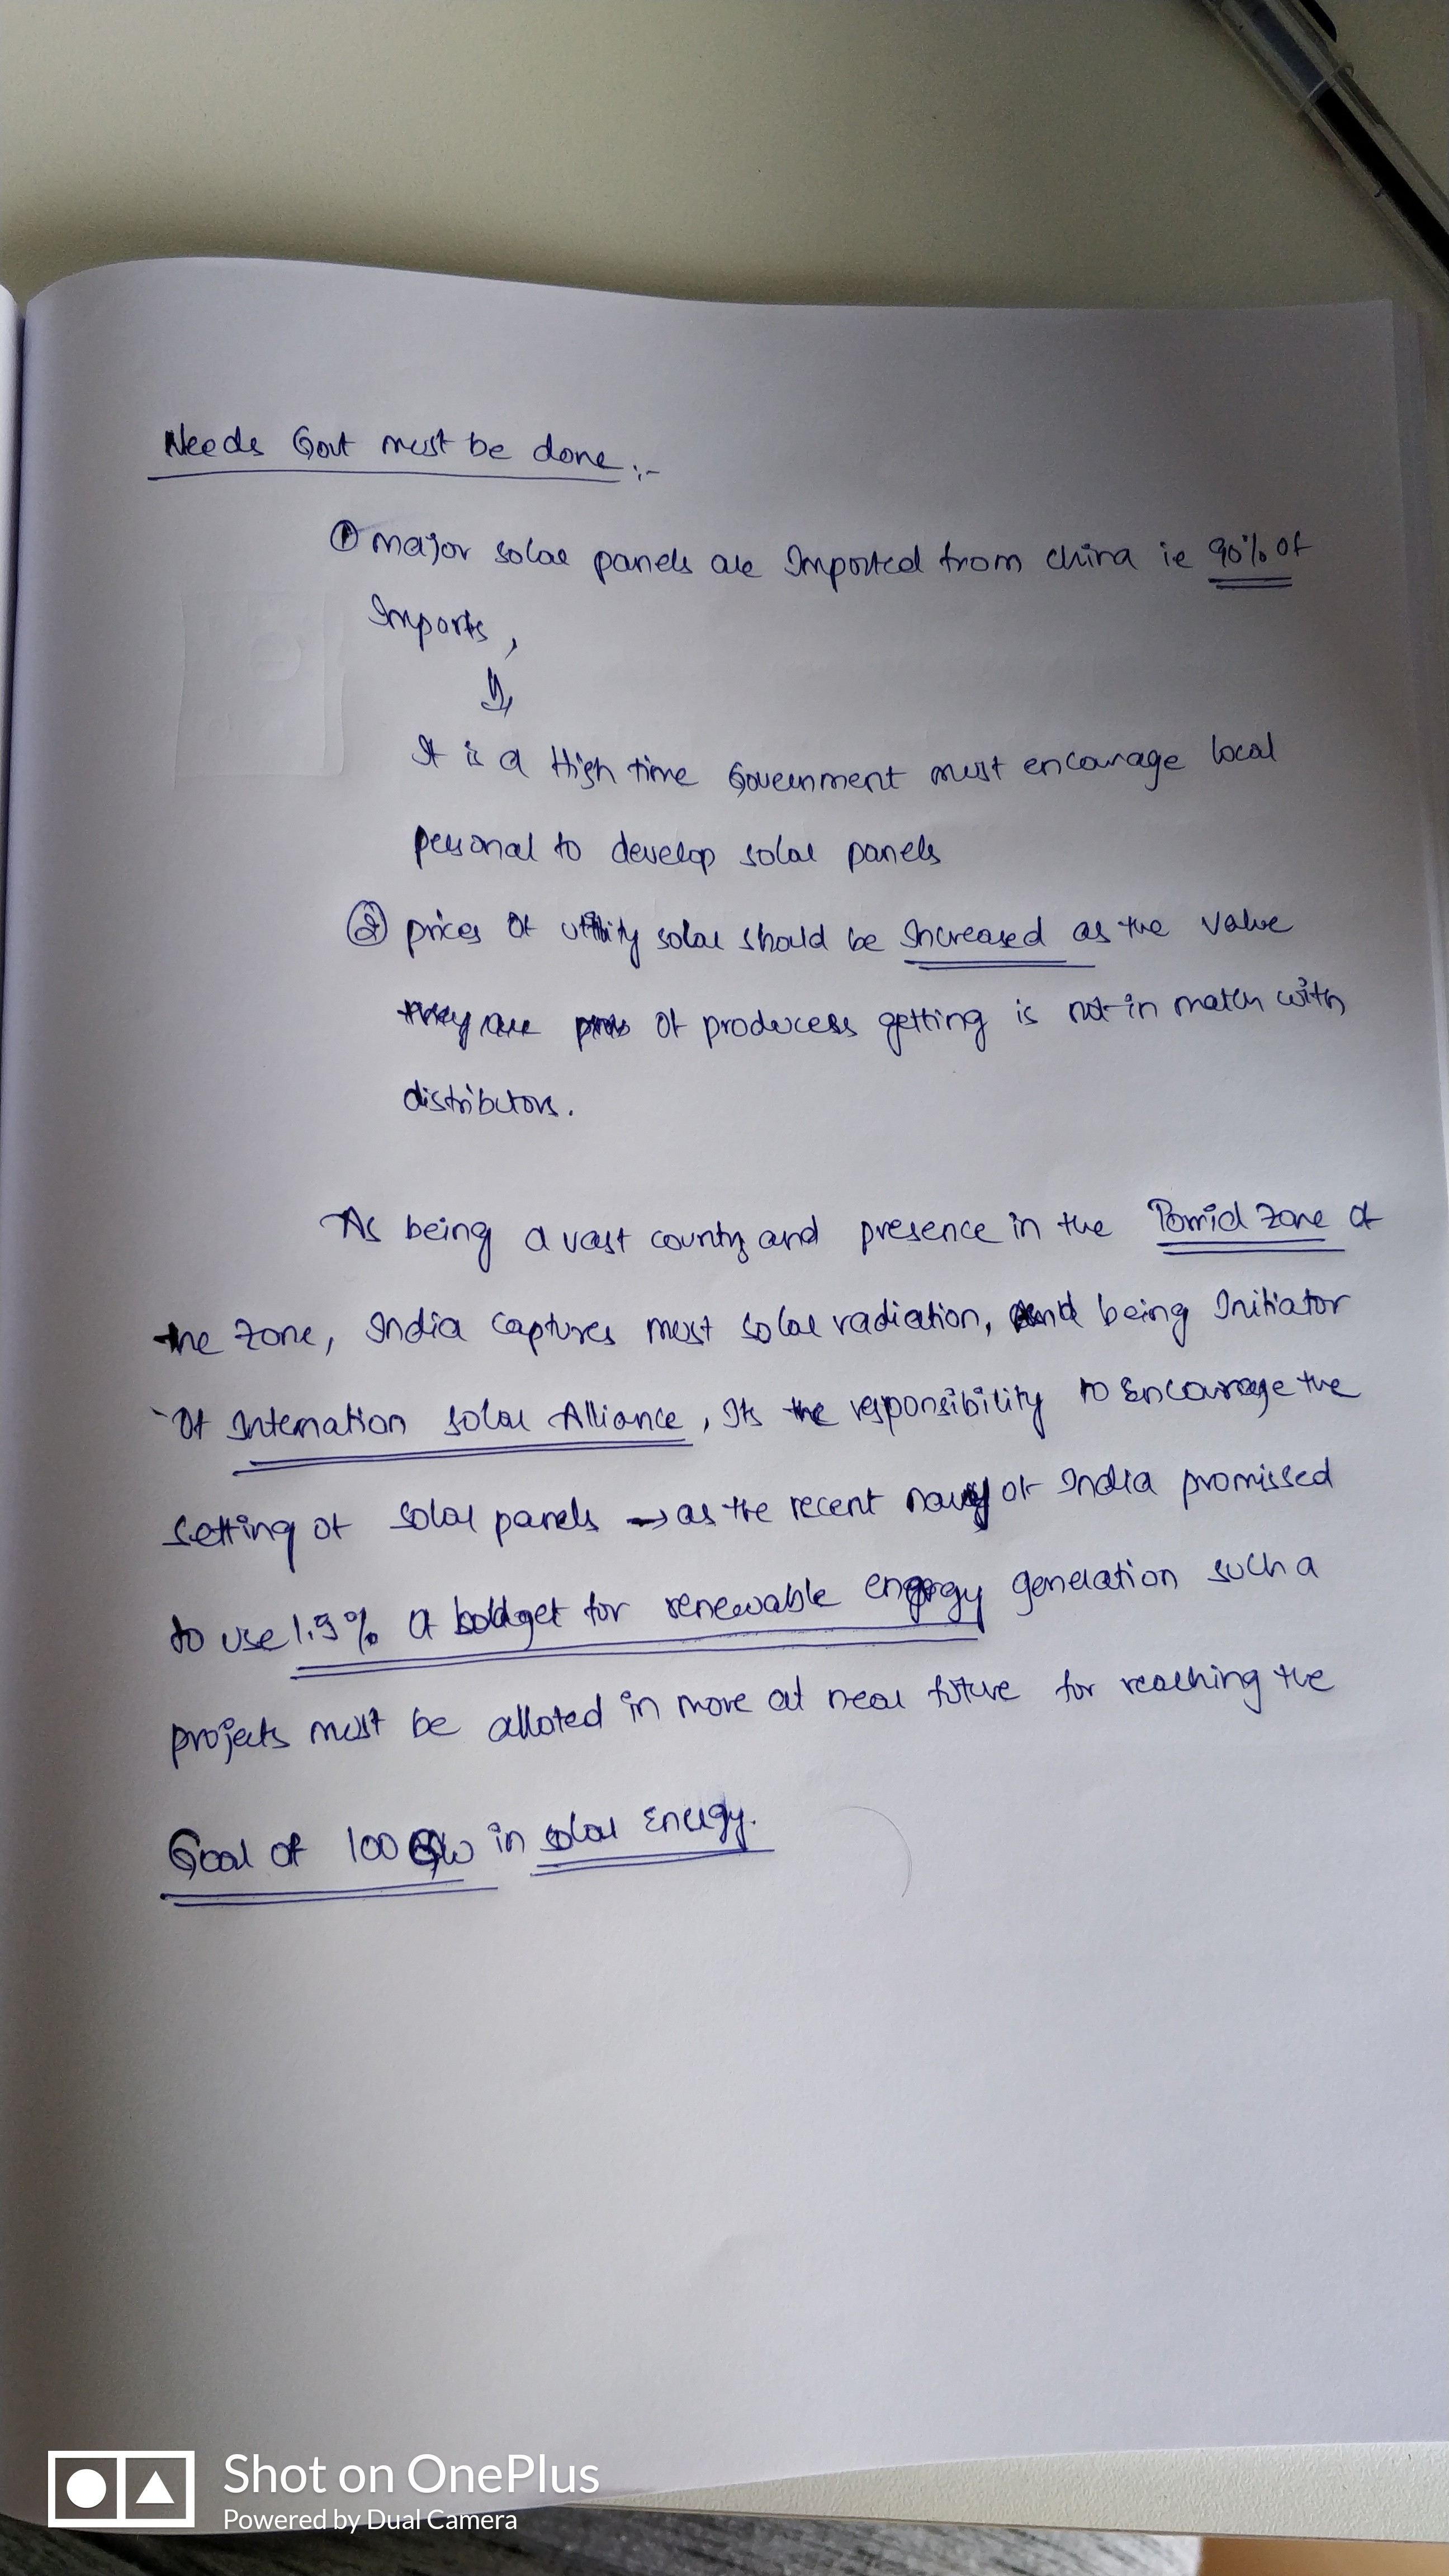 Needs Govt must be done :-
① major solar panels are Imported from china ie 90% of
Imports,
It is a High time Government must encourage local
personal to develop solar panels
② prices of utility solar should be Increased as the value
of producess getting is not in match with
distributors.
As being a vast country and presence in the Torrid zone of
the zone, India captures most solar radiation, and being Initiator
of Internation solar Alliance, Its the responsibility to Encourage the
setting of solar panels → as the recent navy of India promissed
to use 1.5% of budget for renewable energy generation such a
projects must be alloted in more at near future for reaching the
Goal of 100 GW in solar Energy.
Shot on OnePlus
Powered by Dual Camera